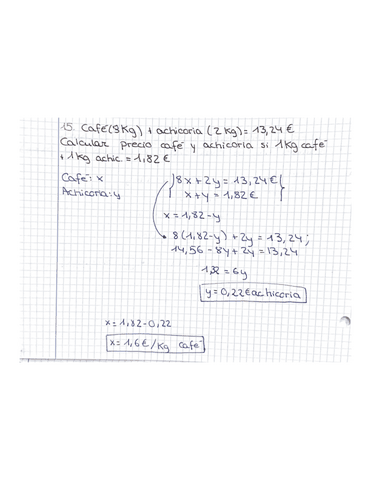 15. Café (8Kg) + achicoria (2 Kg) = 13,24 €
Calcular precio café y achicoria si 1Kg café
+ 1 Kg achic = 1,82 €
Café: x
Achicoria: y
8x + 2y = 13,24 €
x + y = 1,82 €
x = 1,82 - y
8 (1,82 - y) + 2y = 13,24;
14,56 - 8y + 2y = 13,24
1,32 = 6y
y = 0,22 € achicoria
x = 1,82 - 0,22
x = 1,6 € / Kg café